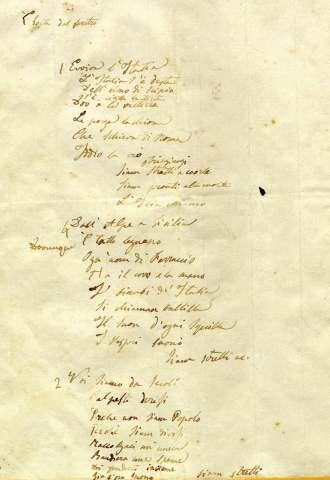 1 Evviva l'Italia
L'Italia s'è desta
Dell'elmo di Scipio
S'è cinta la testa
Dov'è la vittoria
Le porga la chioma
Che schiava di Roma
Iddio la creò
Stringiamci
Siam stretti a coorte
Siam pronti alla morte
L'Italia chiamò
Dall'Alpe a Sicilia
Dovunque
È tutto Legnano
Ogn'uom di Ferruccio
Ha il core e la mano
I bimbi d'Italia
Si chiaman Balilla
Il suon d'ogni squilla
I Vespri suonò
Siam stretti ec.
2 Noi siamo da secoli
Calpesti derisi
Perché non siam Popolo
Perché siam divisi
Raccolgaci un'unica
Bandiera una speme
Di fonderci insieme
Già l'ora suonò
Siam stretti